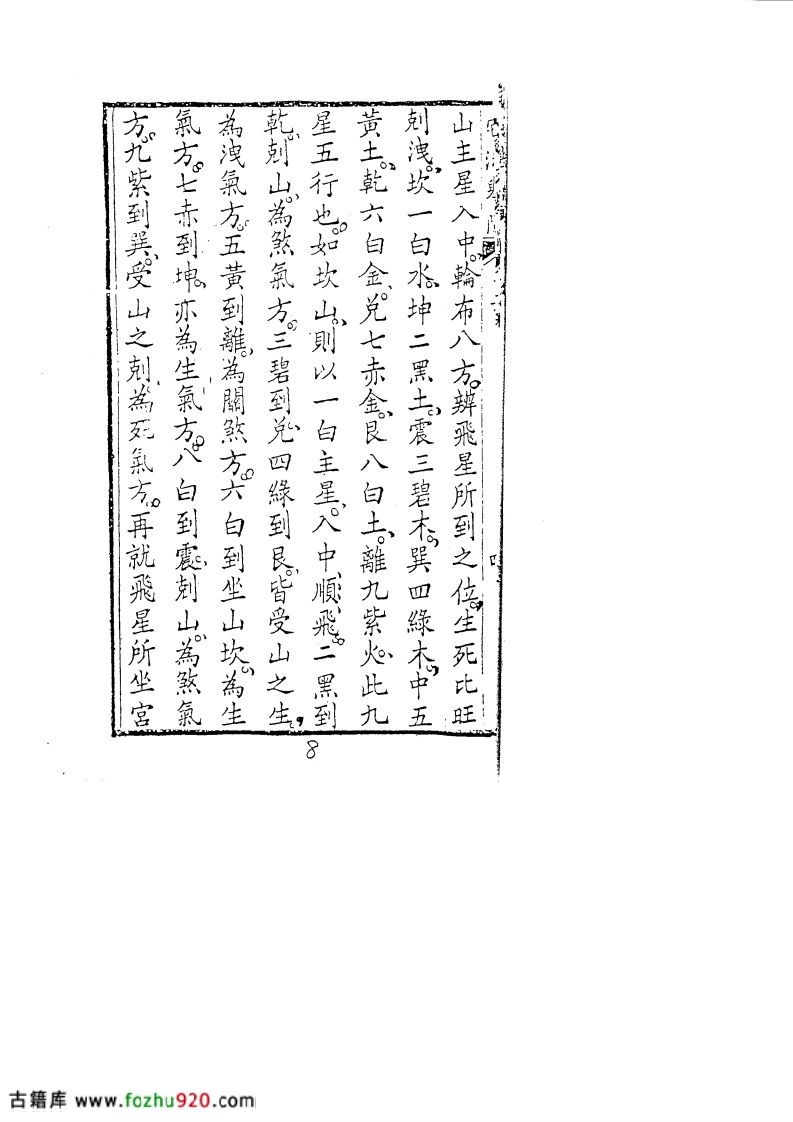 山主星入中。輪布八方。辨飛星所到之位。生死比旺
剋洩。坎一白水。坤二黑土。震三碧木。巽四綠木。中五
黃土。乾六白金、兌七赤金。艮八白土。離九紫火。此九
星五行也。如坎山、則以一白主星、入中、順飛。二黑到
乾、剋山、為煞氣方。三碧到兌、四綠到艮、皆受山之生,
為洩氣方。五黃到離、為關煞方。六白到坐山坎、為生
氣方。七赤到坤、亦為生氣方。八白到震、剋山、為煞氣
方。九紫到巽、受山之剋、為死氣方。再就飛星所坐宮
8
古籍库 www.fozhu920.com